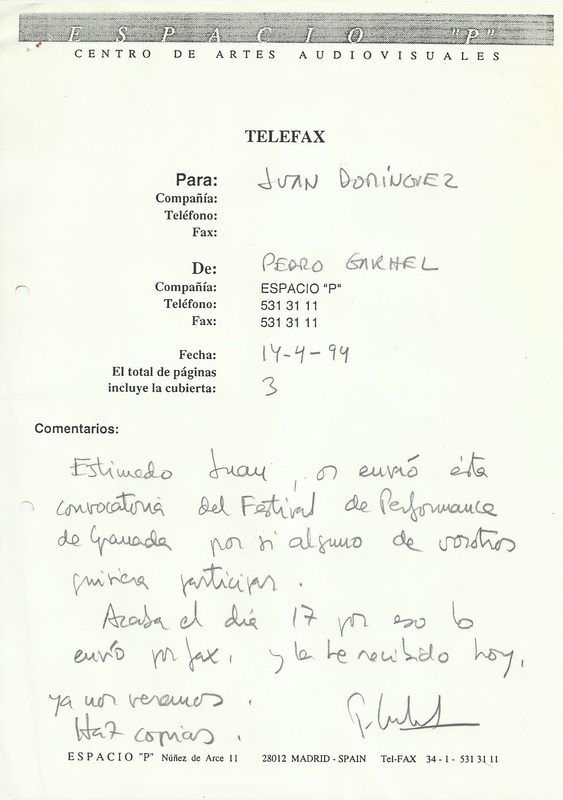 ESPACIO "P"
CENTRO DE ARTES AUDIOVISUALES
TELEFAX
Para: JUAN DOMÍNGUEZ
Compañía:
Teléfono:
Fax:
De: PEDRO GARHEL
Compañía: ESPACIO "P"
Teléfono: 531 31 11
Fax: 531 31 11
Fecha: 14-4-94
El total de páginas
incluye la cubierta: 3
Comentarios:
Estimado Juan, os envió ésta
convocatoria del Festival de Performance
de Granada por si alguno de vosotros
quisiera participar.
Acaba el día 17 por eso lo
envío por fax, y la he recibido hoy,
ya nos veremos.
Haz copias.
ESPACIO "P" Núñez de Arce 11 28012 MADRID - SPAIN Tel-FAX 34 - 1 - 531 31 11